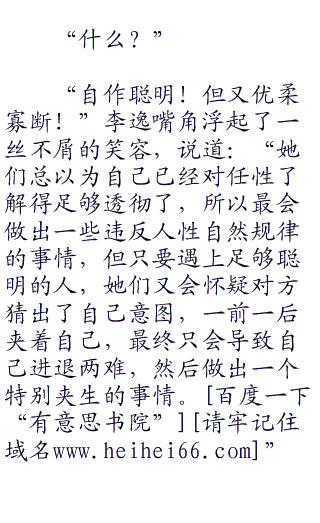 “什么？”
“自作聪明！但又优柔
寡断！”李逸嘴角浮起了一
丝不屑的笑容，说道：“她
们总以为自己已经对任性了
解得足够透彻了，所以最会
做出一些违反人性自然规律
的事情，但只要遇上足够聪
明的人，她们又会怀疑对方
猜出了自己意图，一前一后
夹着自己，最终只会导致自
己进退两难，然后做出一个
特别夹生的事情。[百度一下
“有意思书院”][请牢记住
域名www.heihei66.com]”